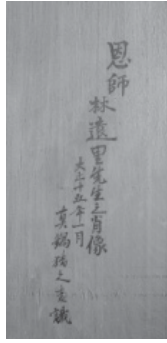 恩師
林遠里先生之肖像
大正十五年一月
真鍋